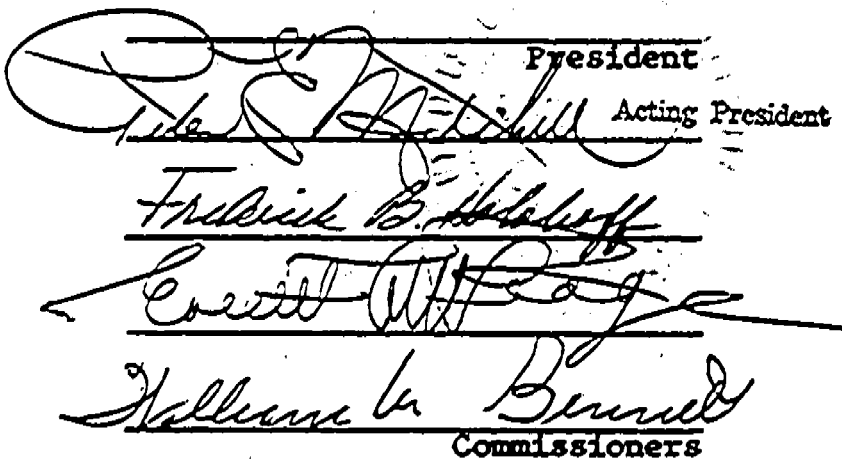 President
Peter E. Mitchell Acting President
Frederick B. Holoboff
Everett C. McKeage
William M. Bennett
Commissioners